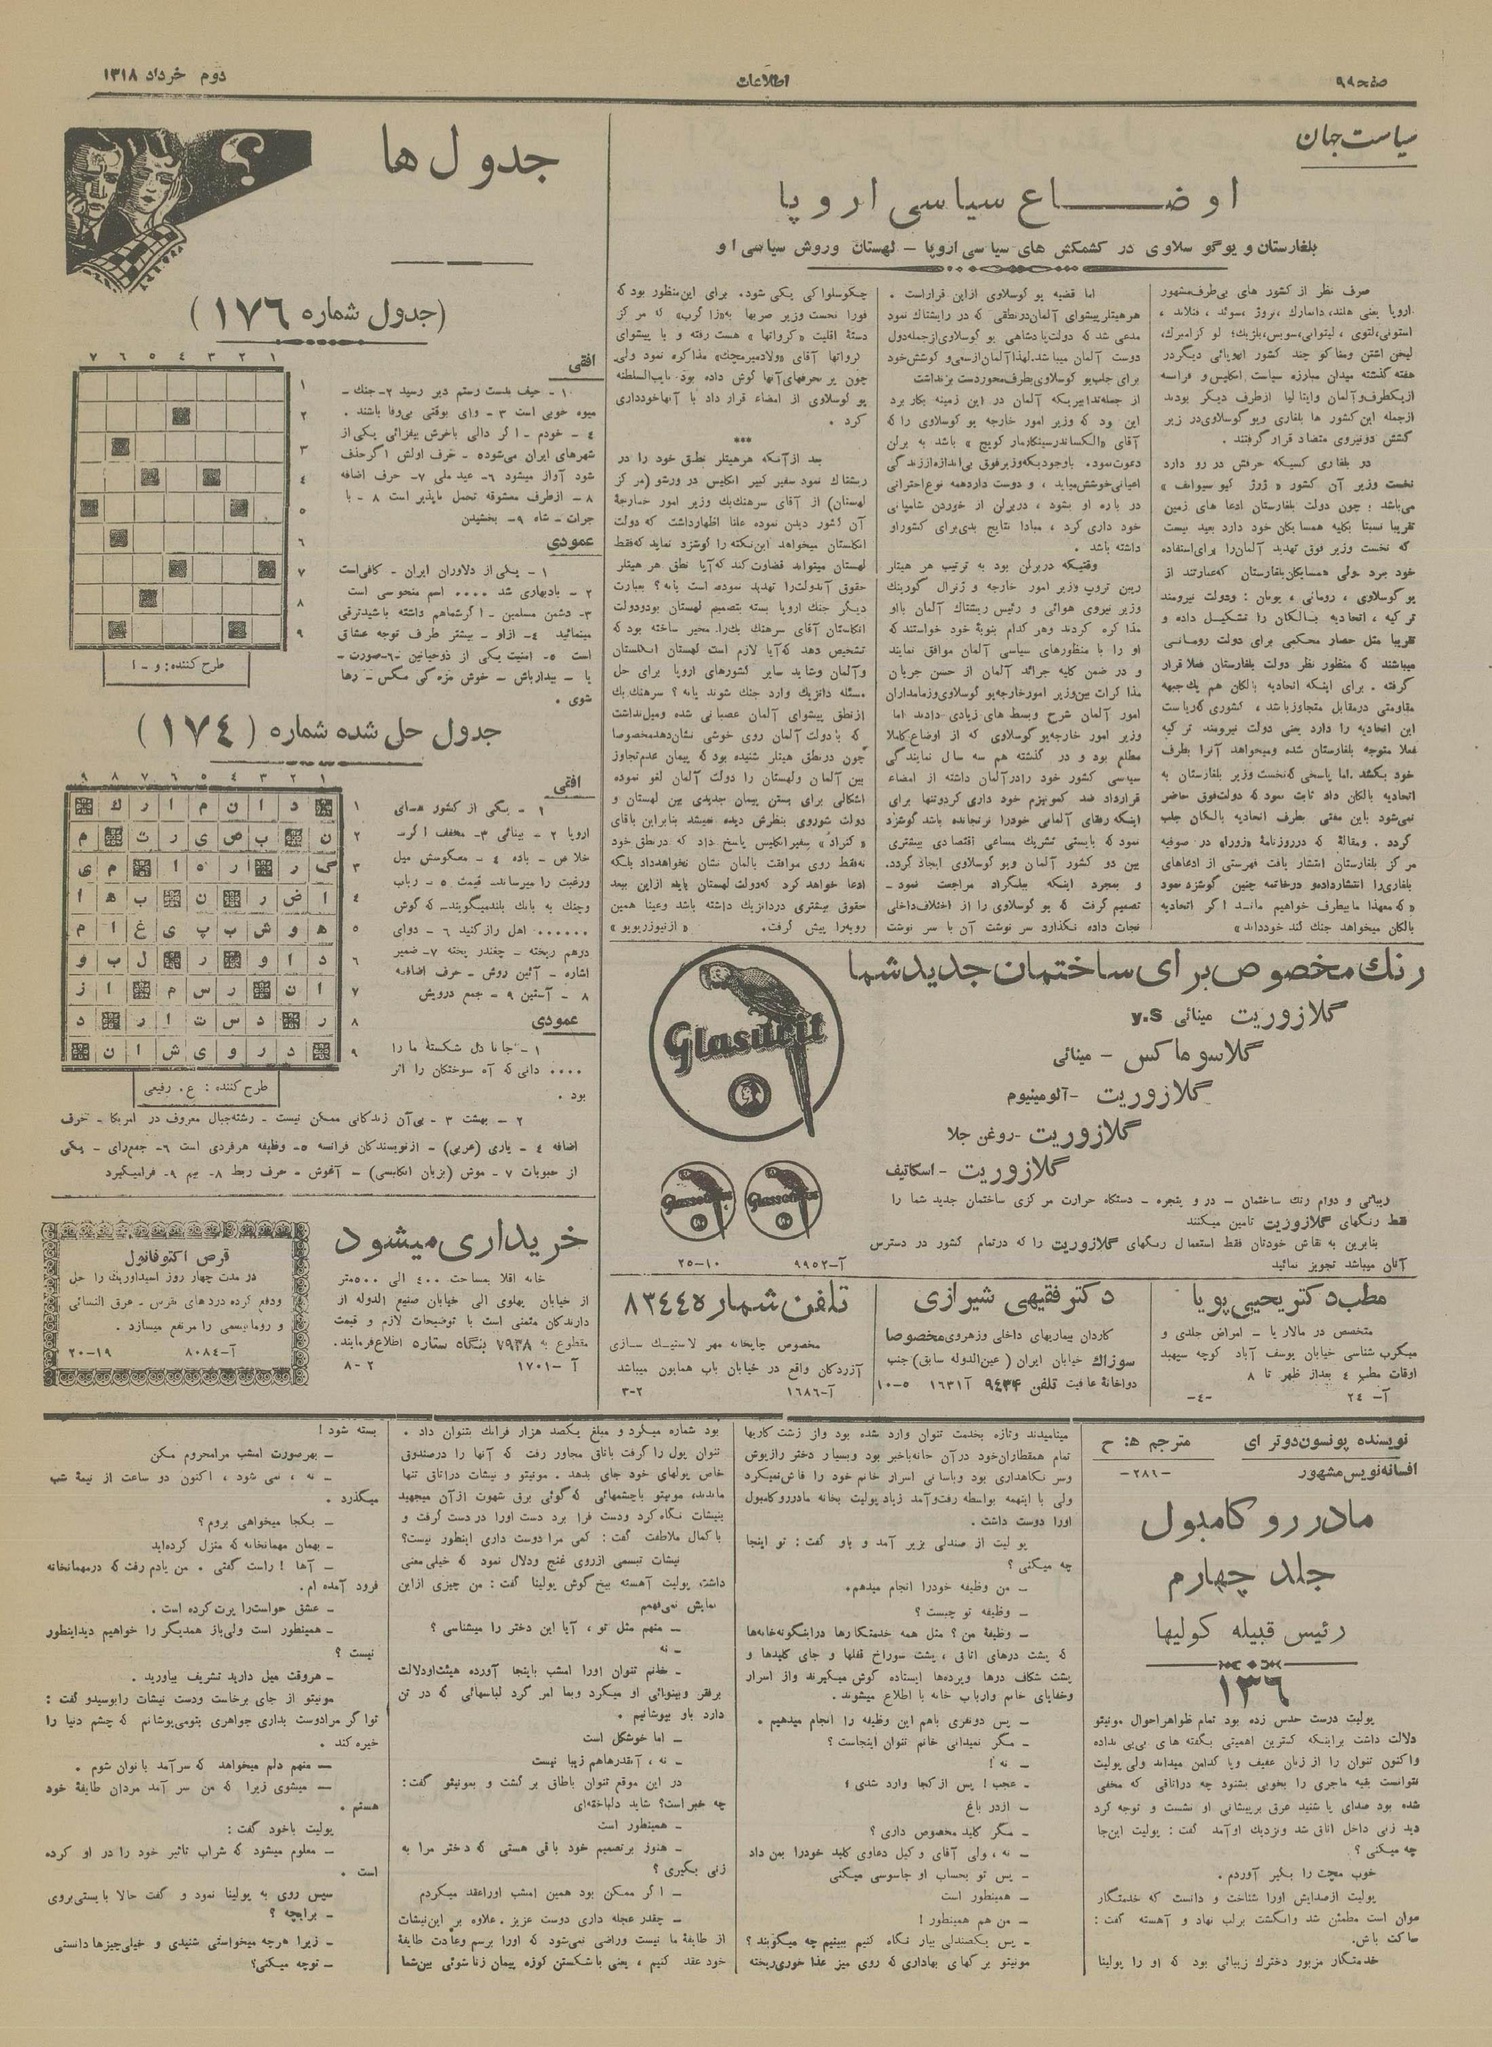 دوم خرداد ۱۳۱۸
اطلاعات
سیاست جهان
اوضاع سیاسی اروپا
بلغارستان و یوگوسلاوی در کشمکش های سیاسی اروپا – لهستان وروش سیاسی او
صرف نظر از کشور های بی‌طرف مشهور
هفته گذشته میدان مبارزه سیاست انگلیس و فرانسه
ازیکطرف وآلمان وایتالیا ازطرف دیگر بودند
ازجمله این کشور ها بلغاری ویوگوسلاوی در زیر
کشش دونیروی متضاد قرار گرفتند.
در بلغاری کسیکه حرفش در رو دارد
نخست وزیر آن کشور « ژرژ کیوسیوانف »
میباشد؛ چون دولت بلغارستان ادعا های زمین
تقریبا نسبتا بکلیه همسایگان خود دارد بعید نیست
که نخست وزیر فوق تهدید آلمان را برای استفاده
خود ببرد ولی همسایگان بلغارستان که عبارتند از
یوگوسلاوی ، رومانی ، یونان ؛ ودولت نیرومند
ترکیه ، اتحادیه بالکان را تشکیل داده و
تقریبا مثل حصار محکمی برای دولت رومانی
میباشند که منظور نظر دولت بلغارستان فعلا قرار
گرفته . برای اینکه اتحادیه بالکان هم یك جبهه
مقاومتی درمقابل متجاوز باشد ، کشوری که ریاست
این اتحادیه را دارد یعنی دولت نیرومند ترکیه
فعلا متوجه بلغارستان شده ومیخواهد آنرا بطرف
خود بکشد .اما پاسخی که نخست وزیر بلغارستان به
اتحادیه بالکان داد ثابت نمود که دولت فوق حاضر
نمی‌شود باین مفتی بطرف اتحادیه بالکان جلب
گردد . ومقاله که درروزنامهٔ «زورا» در صوفیه
مرکز بلغارستان انتشار یافت فهرستی از ادعاهای
بلغاری را انتشارداده و درخاتمه چنین گوشزد نمود
« که معهذا ما بیطرف خواهیم ماند اگر اتحادیه
بالکان میخواهد جنك کند خودداند»
اما قضیه یوگوسلاوی ازاین قراراست .
هرهیتلر پیشوای آلمان درنطقی که در رایشتاك نمود
مدعی شد که دولت پادشاهی یوگوسلاوی ازجمله دول
دوست آلمان میباشد.لهذا آلمان ازسعی وکوشش خود
برای جلب یوگوسلاوی بطرف محوردست برنداشت
از جمله تدابیریکه آلمان در این زمینه بکار برد
این بود که وزیر امور خارجه یوگوسلاوی را که
آقای «الکساندرسینکارمارکویچ » باشد به برلن
دعوت نمود. باوجودیکه وزیر فوق بی‌اندازه اززندگی
اعیانی خوشش میاید ، و دوست داردهمه نوع احتراتی
در باره او بشود ، دربرلن از خوردن شامپانی
خود داری کرد ، مبادا نتایج بدی برای کشور او
داشته باشد .
وقتیکه دربرلن بود به ترتیب هر هیتلر
ریبن تروپ وزیر امور خارجه و ژنرال گورینك
وزیر نیروی هوائی و رئیس ریشتاك آلمان بااو
مذاکره کردند وهر کدام بنوبهٔ خود خواستند که
او را با منظورهای سیاسی آلمان موافق نمایند
و در ضمن کلیه جرائد آلمان از حسن جریان
مذاکرات بین وزیر امور خارجه یوگوسلاوی وزمامداران
امور آلمان شرح وبسط های زیادی دادند اما
وزیر امور خارجه یوگوسلاوی که از اوضاع کاملا
مطلع بود و در گذشته هم سه سال نمایندگی
سیاسی کشور خود را در آلمان داشته از امضاء
قرارداد ضد کمونیزم خود داری کرد وتنها برای
اینکه رفقای آلمانی خودرا نرنجانده باشد گوشزد
نمود که بایستی تشریك مساعی اقتصادی بیشتری
بین دو کشور آلمان ویوگوسلاوی ایجاد گردد.
و بمجرد اینکه ببلگراد مراجعت نمود -
تصمیم گرفت که یوگوسلاوی را از اختلاف داخلی
نجات داده نگذارد سر نوشت آن با سر نوشت
چکوسلواکی یکی شود. برای این منظور بود که
فورا نخست وزیر صربها به«زاگرب» که مرکز
دستهٔ اقلیت «کرواتها » هست رفته و با پیشوای
کرواتها آقای «ولادمیرمچك» مذاکره نمود ولی
چون بر حرفهای آنها گوش داده بود نایب السلطنه
یوگوسلاوی از امضاء قرار داد با آنها خودداری
کرد .
***
بعد ازآنکه هرهیتلر نطق خود را در
ریشتاك نمود سفیر کبیر انگلیس در ورشو (مرکز
لهستان) از آقای سرهنك بك وزیر امور خارجهٔ
آن کشور دیدن نموده علنا اظهارداشت که دولت
انگلستان میخواهد این نکته را گوشزد نماید که فقط
لهستان میتواند قضاوت کند که آیا نطق هر هیتلر
حقوق آندولت را تهدید نموده است یا نه ؟ بعبارت
دیگر جنك اروپا بسته بتصمیم لهستان بود ودولت
انگلستان آقای سرهنك بك را مخیر ساخته بود که
تشخیص دهد که آیا لازم است لهستان انگلستان
وآلمان وشاید سایر کشورهای اروپا برای حل
مسئله دانزیك وارد جنك شوند یا نه ؟ سرهنك بك
ازنطق پیشوای آلمان عصبانی شده ومیل نداشت
که با دولت آلمان روی خوشی نشان دهد مخصوصا
چون درنطق هیتلر شنیده بود که پیمان عدم تجاوز
بین آلمان ولهستان را دولت آلمان لغو نموده
اشکالی برای بستن پیمان جدیدی بین لهستان و
دولت شوروی بنظرش دیده نمیشد بنابراین باقای
«کنراد» سفیر انگلیس پاسخ داد که درنطق خود
نه فقط روی موافقت بالمان نشان نخواهد داد بلکه
ادعا خواهد کرد که دولت لهستان باید ازاین ببعد
حقوق بیشتری دردانزیك داشته باشد وعینا همین
رویه را پیش گرفت. « ازنیوزریویو »
جدول ها
؟
(جدول شماره ۱۷۶)
افقی
۱ - حیف بدست رستم دیر رسید ۲- جنك -
میوه خوبی است ۳ - وای بوقتی بی‌وفا باشند .
۴ - خودم - اگر دالی باخرش بیفزائی یکی از
شهرهای ایران می‌شود ۵ - حرف اولش اگر حذف
شود آواز میشود ۶- عید ملی ۷- حرف اضافه
۸ - ازطرف معشوقه تحمل ناپذیر است ۸ - با
جرات - شاه ۹- بخشیدن
عمودی
۱ - یکی از دلاوران ایران - کافی است
۲ - بادبهاری شد .... اسم منحوسی است
۳- دشمن مسلمین - اگرشماهم داشته باشید ترقی
مینمائید ۴- ازاو - بیشتر طرف توجه عشاق
است ۵- امنیت یکی از ذوحیاتین ۶-صورت -
یا - بیدارباش - خوش مزه گی مکس - رها
شوی .
۱ ۲ ۳ ۴ ۵ ۶ ۷
۱
۲
۳
۴
۵
۶
۷
۸
۹
طرح کننده: و - ا
جدول حل شده شماره (۱۷۴)
افقی
۱ - یکی از کشور های
اروپا ۲ - بینائی ۳- مخفف اگر-
خلاص - باده ۴ - معکوسش میل
ورغبت را میرساند- قیمت ۵ - رباب
وچنك به بانك بلند میگویند- که گوش
...... اهل راز کنید ۶ - دوای
درهم ریخته - چغندر پخته ۷- ضمیر
اشاره - آئین روش - حرف اضافه
۸ - آستین ۹ - جمع درویش
عمودی
۱ - جانا دل شکستهٔ ما را
.... دانی که آه سوختگان را اثر
بود .
۲ - بهشت ۳ - بی‌آن زندگانی ممکن نیست - رشته جبال معروف در امریکا - حرف
اضافه ۴ - یاری (عربی) - ازنویسندگان فرانسه ۵- وظیفه هرفردی است ۶- جمع رای - یکی
از حبوبات ۷ - موش (بزبان انگلیسی) - آغوش - حرف ربط ۸- بیم ۹- فرامیگیرد
۱ ۲ ۳ ۴ ۵ ۶ ۷ ۸ ۹
۱ د ا ن م ا ر ك
۲ ن ب ص ی ر ت م
۳ گ ر ر ه ا م ی
۴ ا ض ر ن ب ه ا
۵ ه و ش ب پ ی غ ا م
۶ د ا و ر ل ب و
۷ ا ن ر س م ا ز
۸ ر د س ت ا ر د
۹ د ر و ی ش ا ن
طرح کننده : ع. رفیعی
رنك مخصوص برای ساختمان جدید شما
Glasurit
گلازوریت مینائی y.s
گلاسوماکس - مینائی
گلازوریت -آلومینیوم
گلازوریت -روغن جلا
گلازوریت - اسکاتیف
زیبائی و دوام رنك ساختمان - در و پنجره - دستگاه حرارت مرکزی ساختمان جدید شما را
فقط رنگهای گلازوریت تامین میکنند
بنابرین به نقاش خودتان فقط استعمال رنگهای گلازوریت را که درتمام کشور در دسترس
آنان میباشد تجویز نمائید
آ-۹۹۵۲ ۱۰-۲۵
مطب دکتر یحیی پویا
متخصص در مالاریا - امراض جلدی و
میکرب شناسی خیابان یوسف آباد کوچه سپهبد
اوقات مطب ۴ بعداز ظهر تا ۸
آ- ۲۴ -۴-
دکتر فقیهی شیرازی
کاردان بیماریهای داخلی وزهروی مخصوصا
سوزاك خیابان ایران (عین الدوله سابق) جنب
دواخانهٔ عافیت تلفن ۹۴۳۴ آ ۱۶۳۱ ۵-۱۰
تلفن شماره ۸۳۴۴
مخصوص چاپخانه مهر لاستیك سازی
آزردگان واقع در خیابان باب همایون میباشد
آ-۱۶۸۶ ۲-۳
خریداری میشود
خانه اقلا بمساحت ۴۰۰ الی ۵۰۰متر
از خیابان پهلوی الی خیابان صنیع الدوله از
دارندگان متمنی است با توضیحات لازم و قیمت
مقطوع به ۷۹۳۸ بنگاه ستاره اطلاع فرمایند.
آ -۱۷۰۱ ۲-۸
قرص اکتوفانول
در مدت چهار روز اسیداوریك را حل
ودفع کرده دردهای نقرس - عرق النسائی
و روماتیسمی را مرتفع میسازد .
آ-۸۰۸۴ ۱۹-۲۰
نویسنده پونسون دوترای
افسانه نویس مشهور
مترجم ه: ح
-۲۸۶-
مادر روکامبول
جلد چهارم
رئیس قبیله کولیها
۱۳۶
یولیت درست حدس زده بود تمام ظواهر احوال مونیتو
دلالت داشت براینکه کمترین اهمیتی بگفته های بی‌بی نداده
واکنون تنوان را از زنان عفیف وپاکدامن میداند ولی یولیت
نتوانست بقیه ماجری را بخوبی بشنود چه دراتاقی که مخفی
شده بود صدای پا شنید عرق برپیشانی او نشست و توجه کرد
دید زنی داخل اتاق شد ونزدیك اوآمد گفت : یولیت این‌جا
چه میکنی ؟
خوب مچت را بگیر آوردم.
یولیت ازصدایش اورا شناخت و دانست که خدمتگار
جوان است مطمئن شد وانگشت برلب نهاد و آهسته گفت :
ساکت باش.
خدمتگار مزبور دخترك زیبائی بود که او را یولینا
مینامیدند وتازه بخدمت تنوان وارد شده بود واز زشت کاریها
تمام همقطاران خود در آن خانه باخبر بود وبسیار دختر رازپوش
وسر نگاهداری بود وباسانی اسرار خانم خود را فاش نمیکرد
ولی با اینهمه بواسطه رفت وآمد زیاد یولیت بخانه مادرروکامبول
اورا دوست داشت .
یولیت از صندلی بزیر آمد و باو گفت : تو اینجا
چه میکنی ؟
- من وظیفه خودرا انجام میدهم.
- وظیفه تو چیست ؟
- وظیفهٔ من ؟ مثل همه خدمتکارها دراینگونه خانه‌ها
که پشت درهای اتاق ، پشت سوراخ قفلها و جای کلیدها و
پشت شکاف درها وپرده‌ها ایستاده گوش میگیرند واز اسرار
وخفایای خانم وارباب خانه با اطلاع میشوند .
- پس دونفری باهم این وظیفه را انجام میدهیم .
- مگر نمیدانی خانم تنوان اینجاست ؟
- نه !
- عجب! پس ازکجا وارد شدی ؟
- ازدر باغ
- مگر کلید مخصوص داری ؟
- نه ، ولی آقای وکیل دعاوی کلید خودرا بمن داد
- پس تو بحساب او جاسوسی میکنی
- همینطور است
- من هم همینطور !
- پس یکصندلی بیار نگاه کنیم ببینیم چه میگویند ؟
مونیتو برگهای بهاداری که روی میز غذا خوری ریخته
بود شماره میکرد و مبلغ یکصد هزار فرانك بتنوان داد .
تنوان پول را گرفت باتاق مجاور رفت که آنها را درصندوق
خاص پولهای خود جای بدهد. مونیتو و نیشات دراتاق تنها
ماندند، مونیتو باچشمهائی که گوئی برق شهوت ازآن میجهید
بنیشات نگاه کرد ودست فرا برد دست اورا در دست گرفت و
با کمال ملاطفت گفت : کمی مرا دوست داری اینطور نیست؟
نیشات تبسمی ازروی غنج ودلال نمود که خیلی معنی
داشت یولیت آهسته بیخ گوش یولینا گفت: من چیزی ازاین
نمایش نمی‌فهمم
- منهم مثل تو ، آیا این دختر را میشناسی ؟
- نه
- خانم تنوان اورا امشب باینجا آورده هیئت اودلالت
برفقر وبینوائی او میکرد وبما امر کرد لباسهائی که در تن
دارد باو بپوشانیم .
- اما خوشگل است
- نه ، آنقدرهاهم زیبا نیست
در این موقع تنوان باطاق برگشت و بمونیتو گفت:
چه خبر است؟ شاید دلباخته‌ای
- همینطور است
- هنوز برتصمیم خود باقی هستی که دختر مرا به
زنی بگیری ؟
- اگر ممکن بود همین امشب اوراعقد میکردم
- چقدر عجله داری دوست عزیز. علاوه بر این نیشات
از طایفهٔ ما نیست وراضی نمی‌شود که اورا برسم وعادت طایفهٔ
خود عقد کنیم ، یعنی باشکستن کوزه پیمان زناشوئی بین شما
بسته شود !
- بهرصورت امشب مرامحروم مکن
- نه ، نمی شود ، اکنون دو ساعت از نیمهٔ شب
میگذرد .
- بکجا میخواهی بروم ؟
- بهمان مهمانخانه که منزل کرده‌اید
- آها ! راست گفتی . من یادم رفت که درمهمانخانه
فرود آمده ام.
- عشق حواست را پرت کرده است .
- همینطور است ولی‌باز همدیگر را خواهیم دید اینطور
نیست ؟
- هروقت میل دارید تشریف بیاورید .
مونیتو از جای برخاست ودست نیشات رابوسیدو گفت :
تو اگر مرادوست بداری جواهری بتومی‌پوشانم که چشم دنیا را
خیره کند .
— منهم دلم میخواهد که سرآمد بانوان شوم .
— میشوی زیرا که من سر آمد مردان طایفهٔ خود
هستم .
یولیت باخود گفت :
- معلوم میشود که شراب تاثیر خود را در او کرده
است .
سپس روی به یولینا نمود و گفت حالا بایستی بروی
- برایچه ؟
- زیرا هرچه میخواستی شنیدی و خیلی‌چیزها دانستی
- توجه میکنی؟